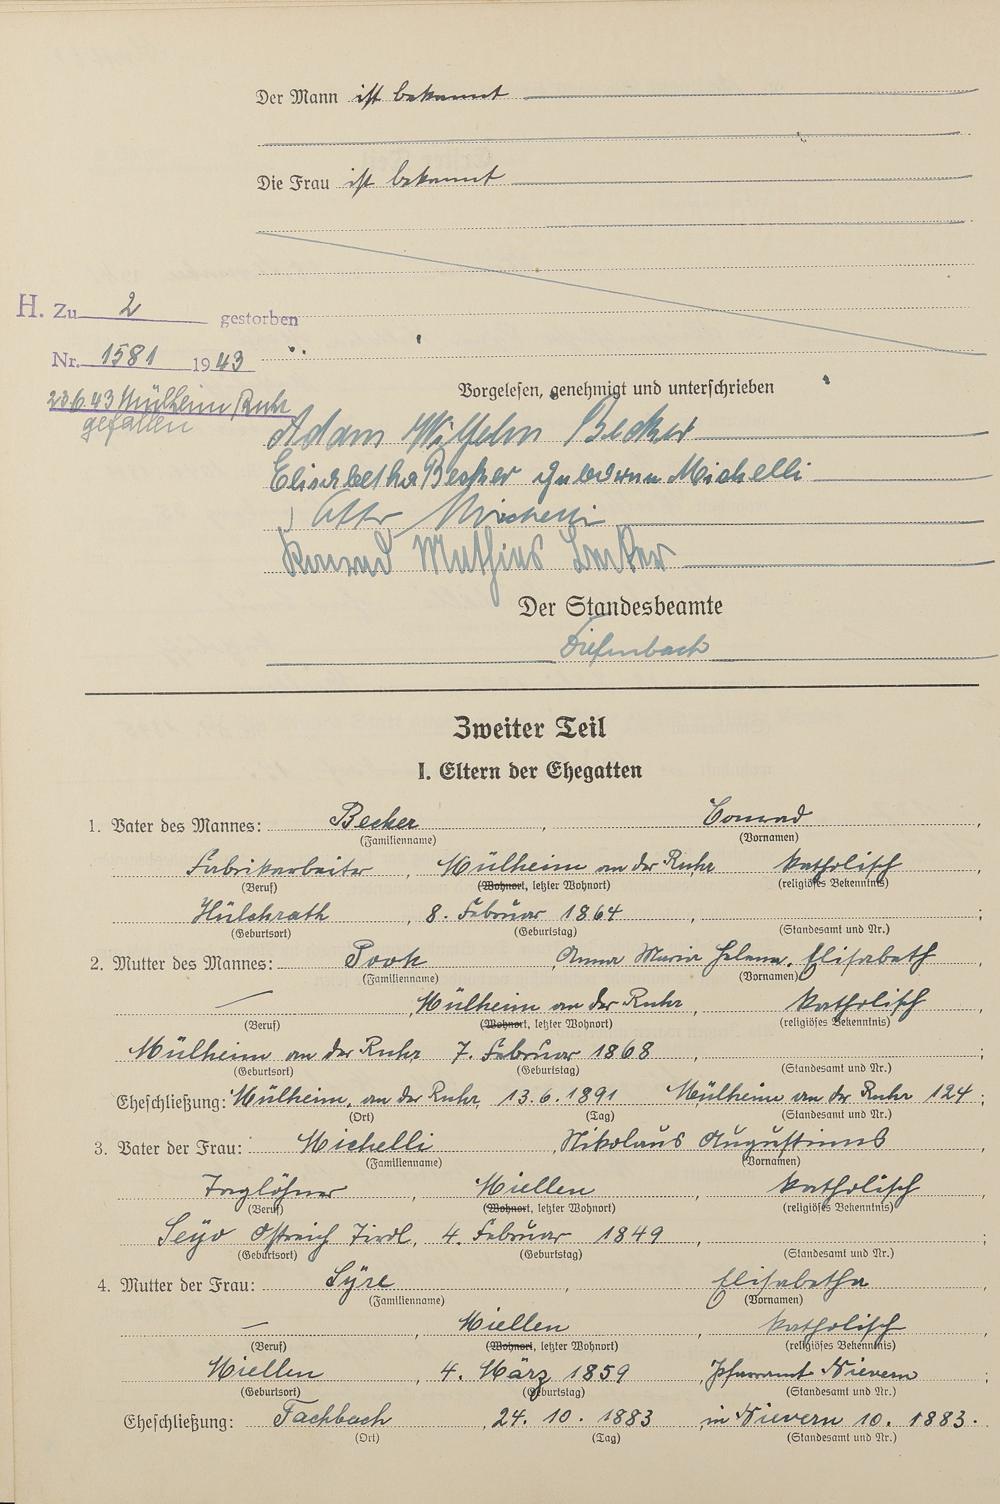 Der Mann ist bekannt
Die Frau ist bekannt
H. Zu 2 gestorben
Nr. 1581 1943
23.6.43 Mülheim/Ruhr
gefallen
Vorgelesen, genehmigt und unterschrieben
Adam Wilhelm Becker
Elisabetha Becker geborene Michelli
Otto Michelli
Konrad Mathias Becker
Der Standesbeamte
Diefenbach
Zweiter Teil
I. Eltern der Ehegatten
1. Vater des Mannes: Becker, Conrad,
(Familienname) (Vornamen)
Fabrikarbeiter, Mülheim an der Ruhr katholisch
(Beruf) (Wohnort, letzter Wohnort) (religiöses Bekenntnis)
Hülchrath, 8. Februar 1864, ;
(Geburtsort) (Geburtstag) (Standesamt und Nr.)
2. Mutter des Mannes: Pook, Anna Maria Helena, Elisabeth,
(Familienname) (Vornamen)
— , Mülheim an der Ruhr, katholisch
(Beruf) (Wohnort, letzter Wohnort) (religiöses Bekenntnis)
Mülheim an der Ruhr 7. Februar 1868, ;
(Geburtsort) (Geburtstag) (Standesamt und Nr.)
Eheschließung: Mülheim an der Ruhr, 13.6.1891 Mülheim an der Ruhr 124;
(Ort) (Tag) (Standesamt und Nr.)
3. Vater der Frau: Michelli, Nikolaus Augustinus,
(Familienname) (Vornamen)
Taglöhner, Miellen, katholisch
(Beruf) (Wohnort, letzter Wohnort) (religiöses Bekenntnis)
Östreich Tirol, 4. Februar 1849, ;
(Geburtsort) (Geburtstag) (Standesamt und Nr.)
4. Mutter der Frau: Syre, Elisabetha,
(Familienname) (Vornamen)
— , Miellen, katholisch
(Beruf) (Wohnort, letzter Wohnort) (religiöses Bekenntnis)
Miellen, 4. März 1859, Pfarramt Nievern;
(Geburtsort) (Geburtstag) (Standesamt und Nr.)
Eheschließung: Fachbach, 24. 10. 1883, in Nievern 10. 1883.
(Ort) (Tag) (Standesamt und Nr.)